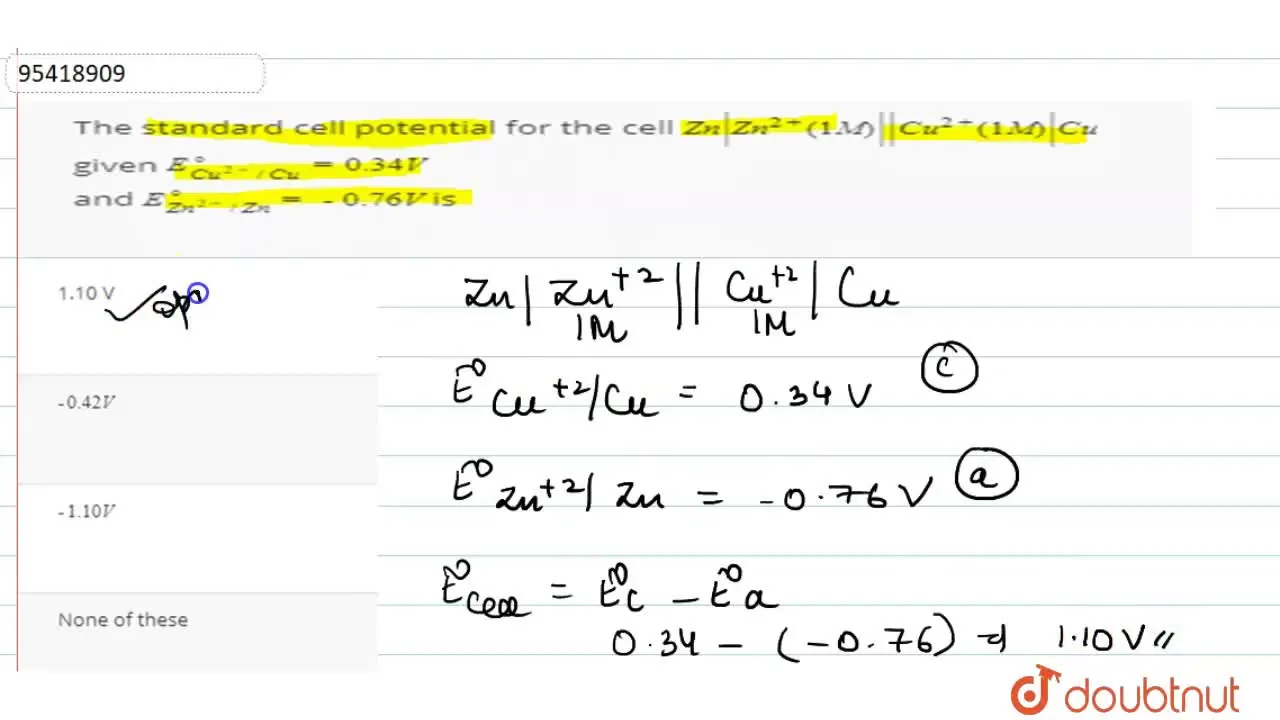 95418909
The standard cell potential for the cell Zn|Zn²⁺(1M)||Cu²⁺(1M)|Cu
given E°Cu²⁺/Cu = 0.34V
and E°Zn²⁺/Zn = - 0.76V is
1.10 V
-0.42V
-1.10V
None of these
Zn | Zn⁺² || Cu⁺² | Cu
1M 1M
E° Cu⁺²/Cu = 0.34 V c
E° Zn⁺²/ Zn = -0.76 V a
E°cell = E°c - E°a
0.34 - (-0.76) ⇒ 1.10 V //
doubtnut